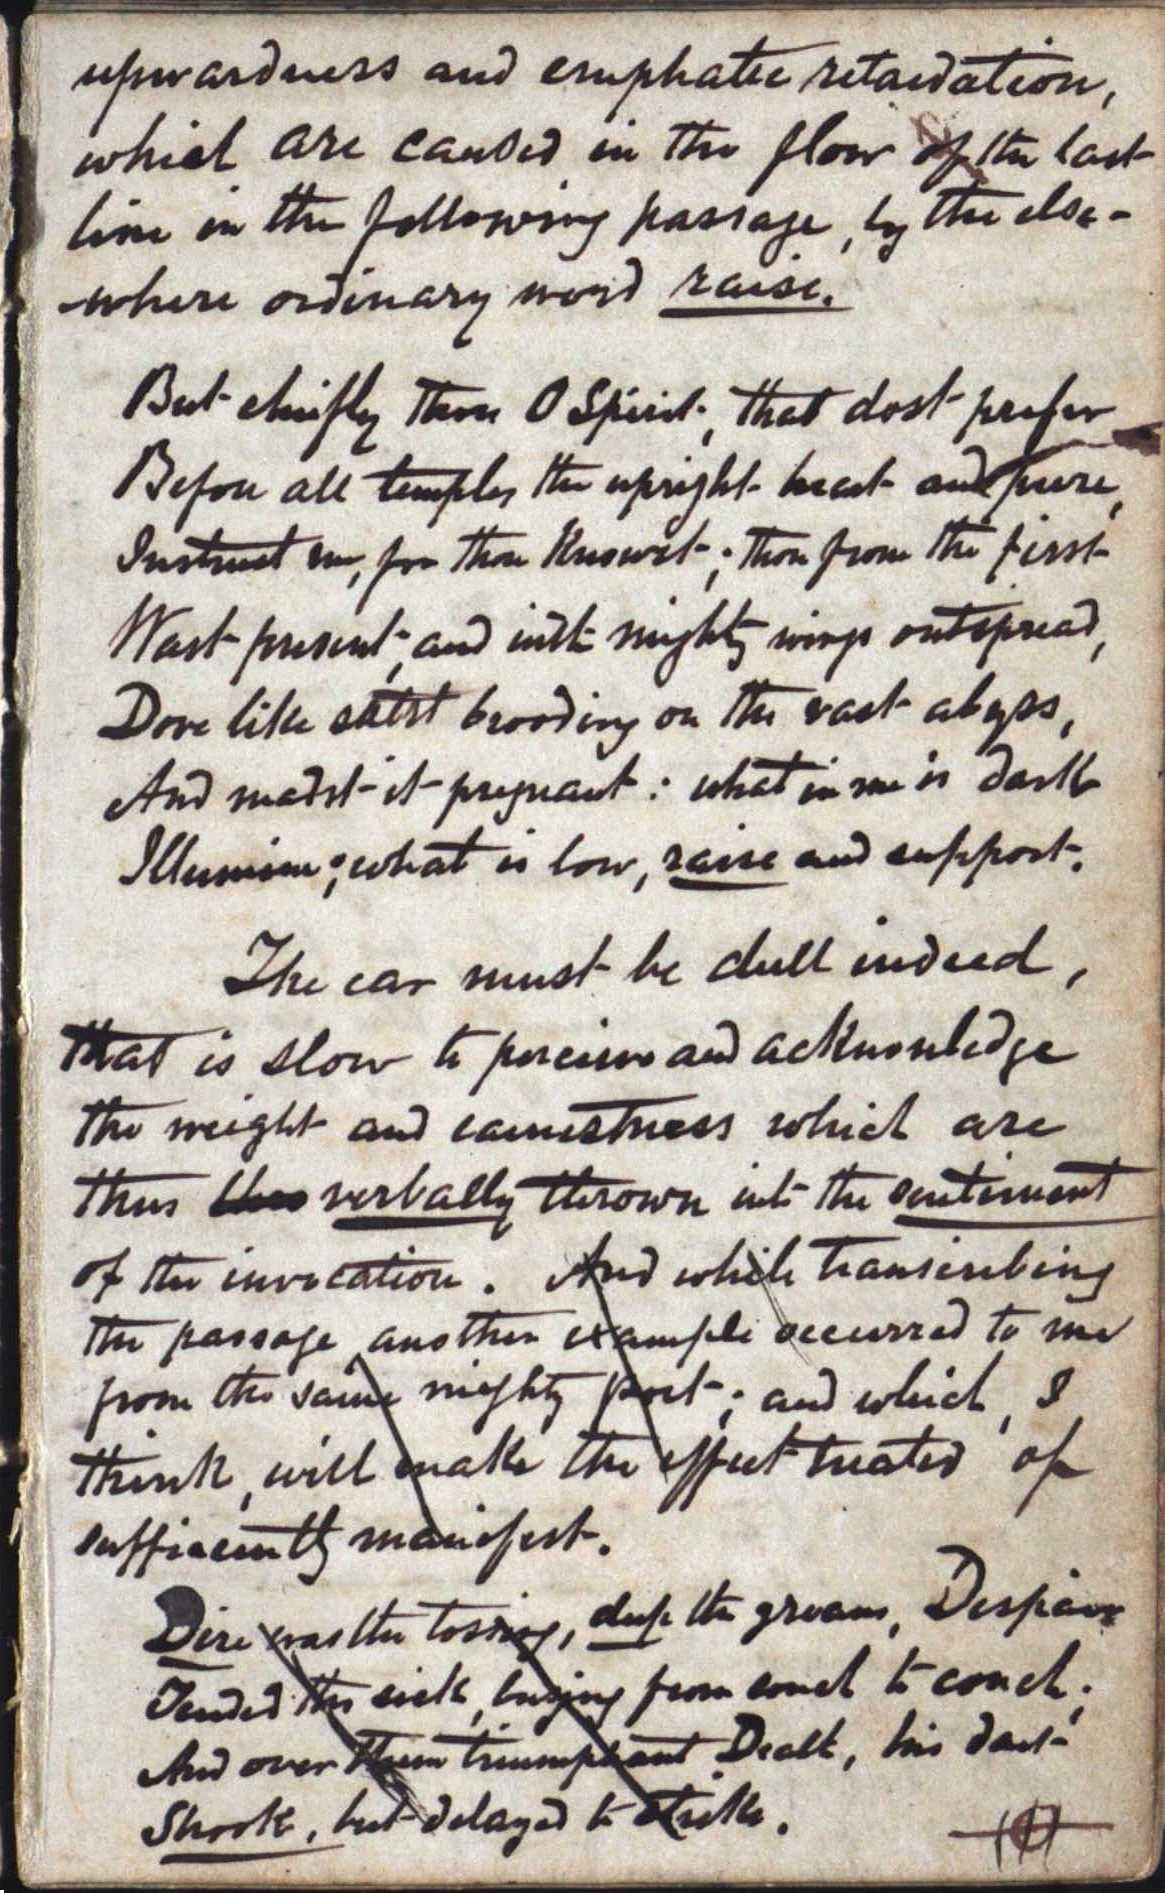 upwardness and emphatic retardation,
which are caused in the flow of the last
line in the following passage, by the else-
where ordinary word raise.
But chiefly Thou O Spirit, that dost prefer
Before all temples the upright heart and pure,
Instruct me, for thou Knowest; thou from the first
Wast present, and with mighty wings outspread,
Dove like satst brooding on the vast abyss,
And madst it pregnant: what in me is dark
Illumine; what is low, raise and support.
The ear must be dull indeed,
that is slow to perceive and acknowledge
the weight and earnestness which are
thus thus verbally thrown into the sentiment
of the invocation. And while transcribing
the passage another example occurred to me
from the same mighty poet; and which, I
think, will make the effect treated of
sufficiently manifest.
Dire was the tossing, deep the groans, Despair
Tended the sick, busying from couch to couch;
And over them triumphant Death, his dart
Shook, but delayed to strike.